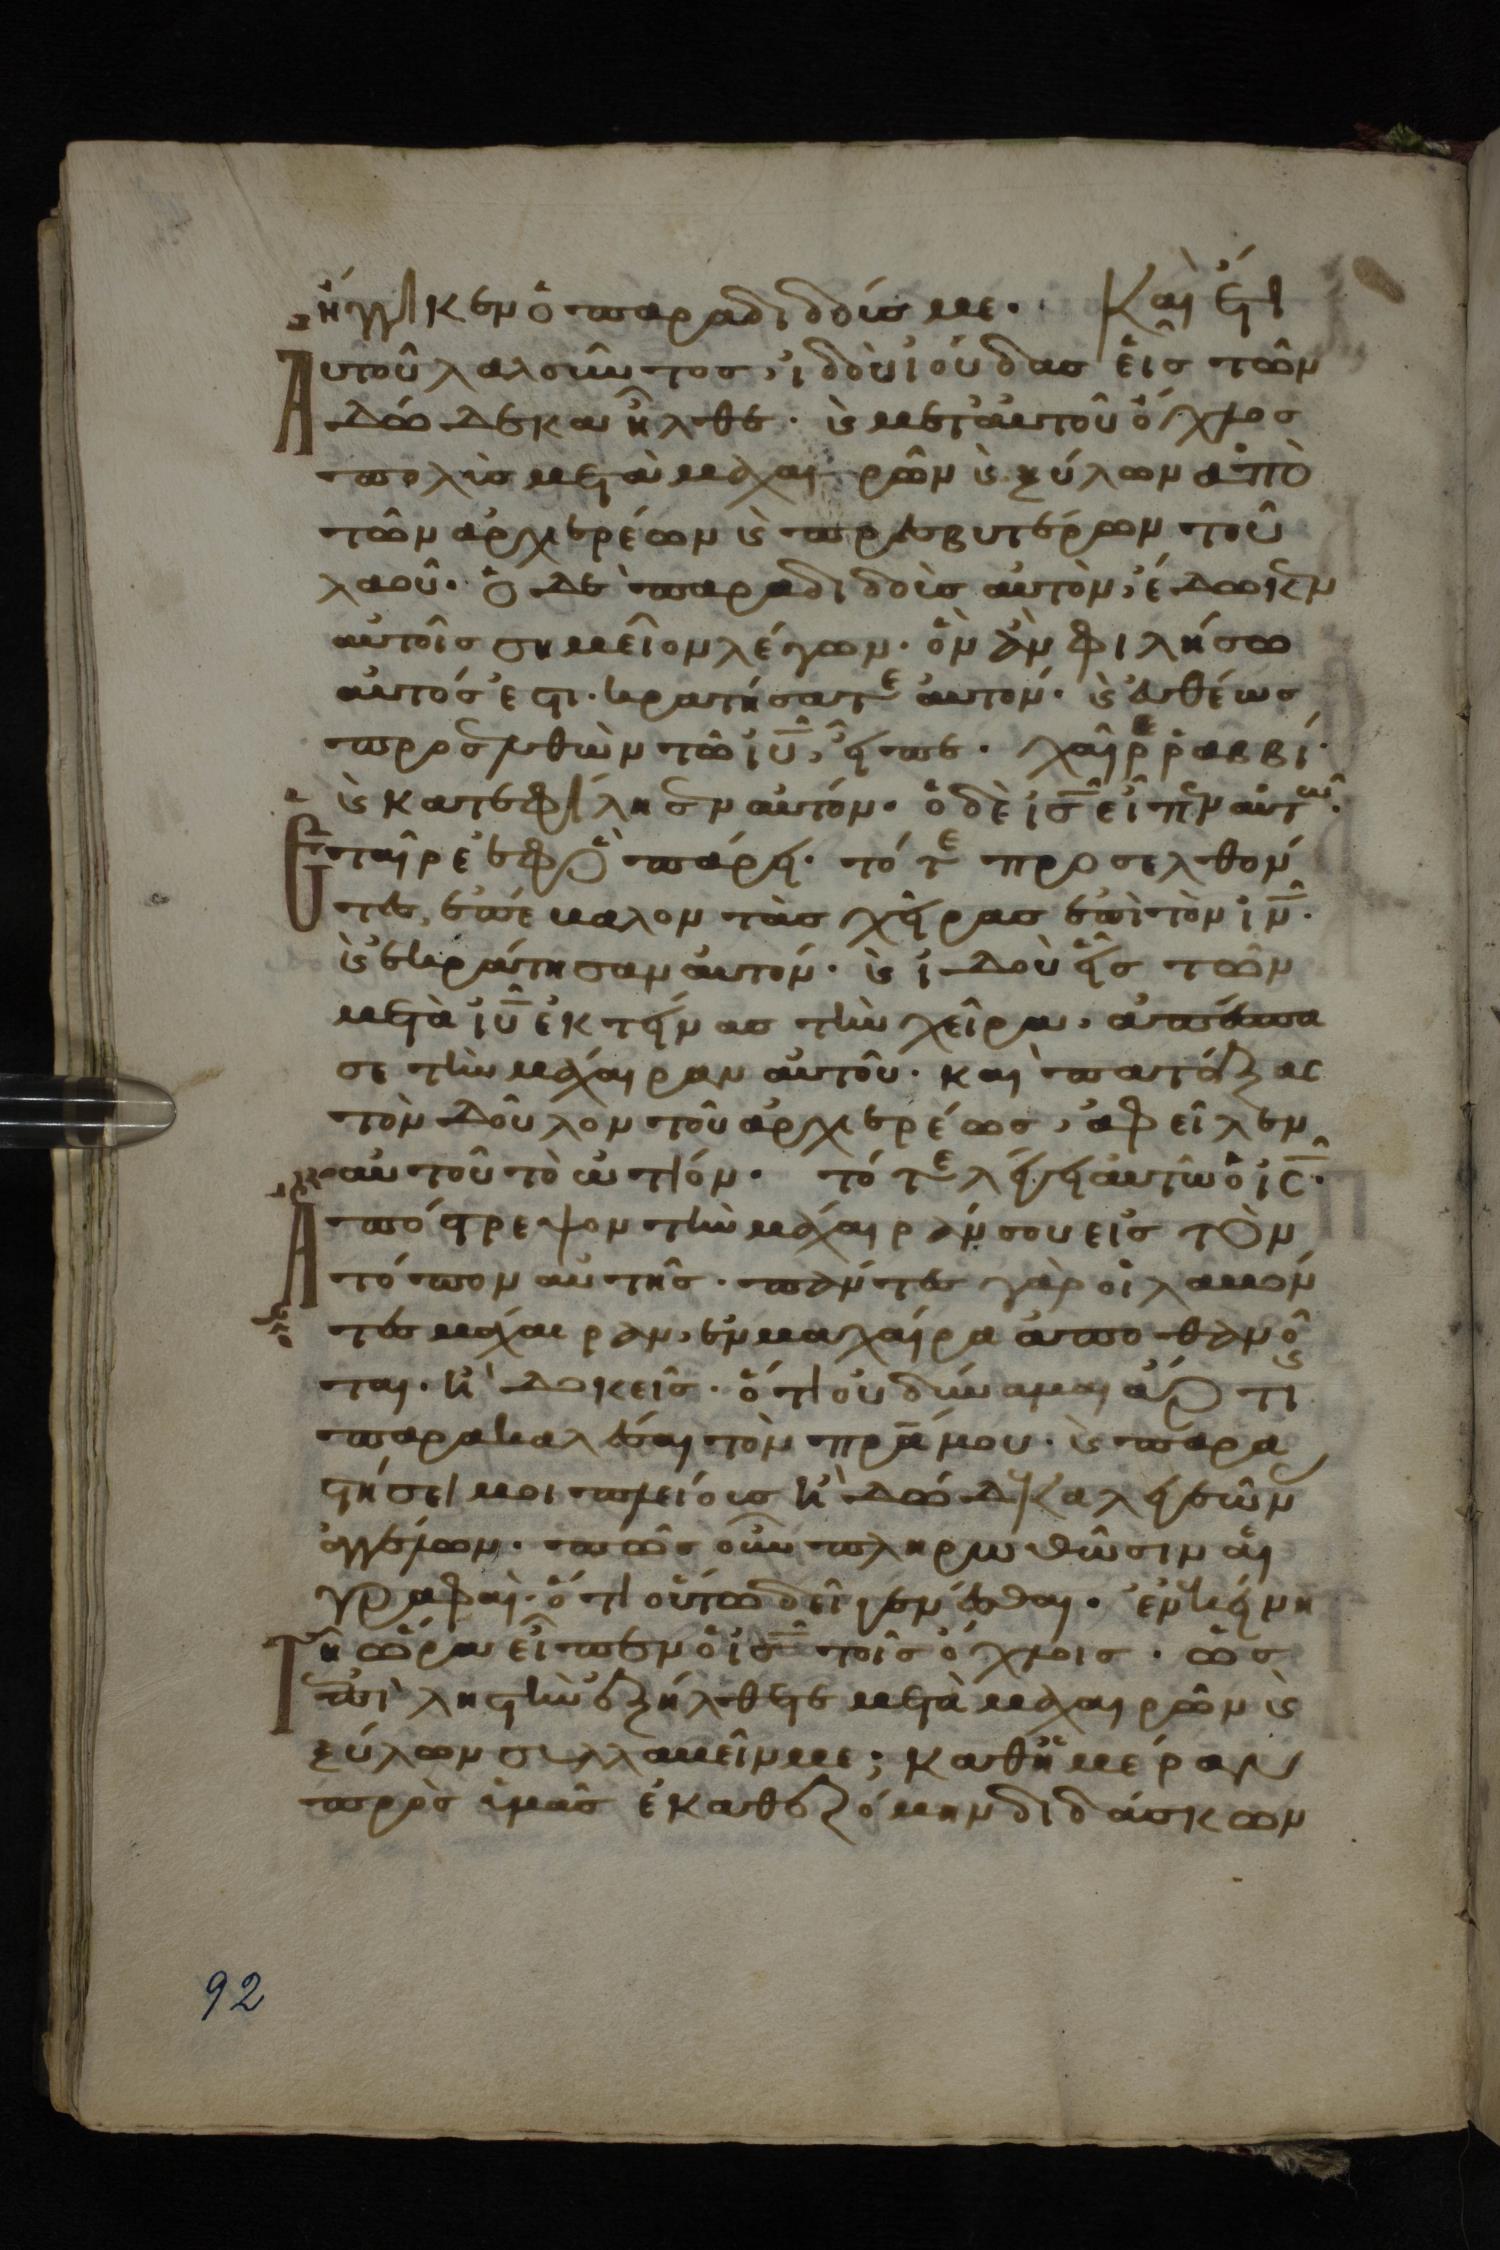 ἤγγικεν ὁ παραδιδούς με. Καὶ ἔτι
Αυτοῦ λαλοῦντος, ἰδοὺ ἰούδας εἷς τῶν
δώδεκα ἦλθε. καὶ μετ' αὐτοῦ ὄχλος
πολὺς μετὰ μαχαιρῶν καὶ ξύλων ἀπὸ
τῶν ἀρχιερέων καὶ πρεσβυτέρων τοῦ
λαοῦ. ὁ δὲ παραδιδοὺς αὐτὸν, ἔδωκεν
αὐτοῖς σημεῖον λέγων. ὃν ἂν φιλήσω
αὐτός ἐστι. κρατήσατε αὐτόν. καὶ εὐθέως
προσελθὼν τῶ ἰῦ, εἶπε. χαῖρε ῥαββί.
καὶ κατεφίλησεν αὐτόν. ὁ δὲ ἰς εἶπεν αὐτῶ.
Εταῖρε ἐφ' ὃ πάρει. τότε προσελθόν
τες, ἐπέβαλον τὰς χεῖρας ἐπὶ τὸν ἰν.
καὶ ἐκράτησαν αὐτόν. καὶ ἰδοὺ εἷς τῶν
μετὰ ἰῦ ἐκτείνας τὴν χεῖρα, ἀπέσπα
σε τὴν μάχαιραν αὐτοῦ. καὶ πατάξας
τὸν δοῦλον τοῦ ἀρχιερέως, ἀφεῖλεν
αὐτοῦ τὸ ὠτίον. τότε λέγει αὐτῶ ὁ ἰς.
Απόστρεψον τὴν μάχαιράν σου εἰς τὸν
τόπον αὐτῆς. πάντες γὰρ οἱ λαβόν
τες μάχαιραν, ἐν μαχαίρα ἀποθανοῦν
ται. ἢ δοκεῖς. ὅτι οὐ δύναμαι ἄρτι
παρακαλέσαι τὸν πρα μου. καὶ παρα
στήσει μοι πλείους ἢ δώδεκα λεγεῶν
ἀγγέλων. πῶς οὖν πληρωθῶσιν αἱ
γραφαί. ὅτι οὕτω δεῖ γενέσθαι. ἐν ἐκείνη
Τῆ ὥρα εἶπεν ὁ ἰς τοῖς ὄχλοις. ὡς
ἐπὶ ληστὴν ἐξήλθετε μετὰ μαχαιρῶν καὶ
ξύλων συλλαβεῖν με; καθ' ἡμέραν
πρὸς ὑμᾶς ἐκαθεζόμην διδάσκων
92